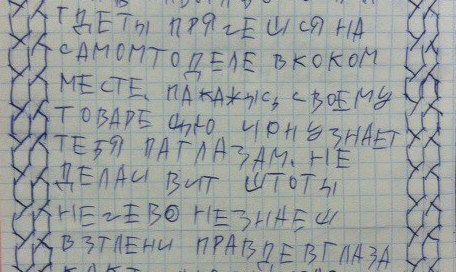 ГДЕТЫ ПРЯЧЕШСЯ НА
САМОМТО ДЕЛЕ ВКОКОМ
МЕСТЕ. ПАКАЖИСЬ СВОЕМУ
ТОВАРЕЩЮ ИОНУЗНАЕТ
ТЕБЯ ПАГЛАЗАМ. НЕ
ДЕЛАИ ВИТ ШТОТЫ
НЕЧЕВО НЕЗНАЕШ
ВЗГЛЕНИ ПРАВДЕВГЛАЗА